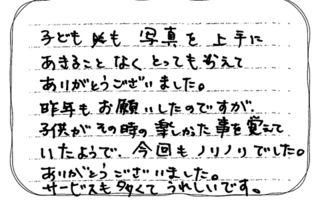 子どもも 写真を 上手に
あきることなく とっても考えて
ありがとうございました。
昨年もお願いしたのですが、
子供がその時の楽しかった事を覚えて
いたようで、今回もノリノリでした。
ありがとうございました。
サービスも多くてうれしいです。